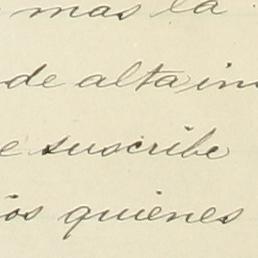 mas la
de alta im
e suscribe
ios quienes